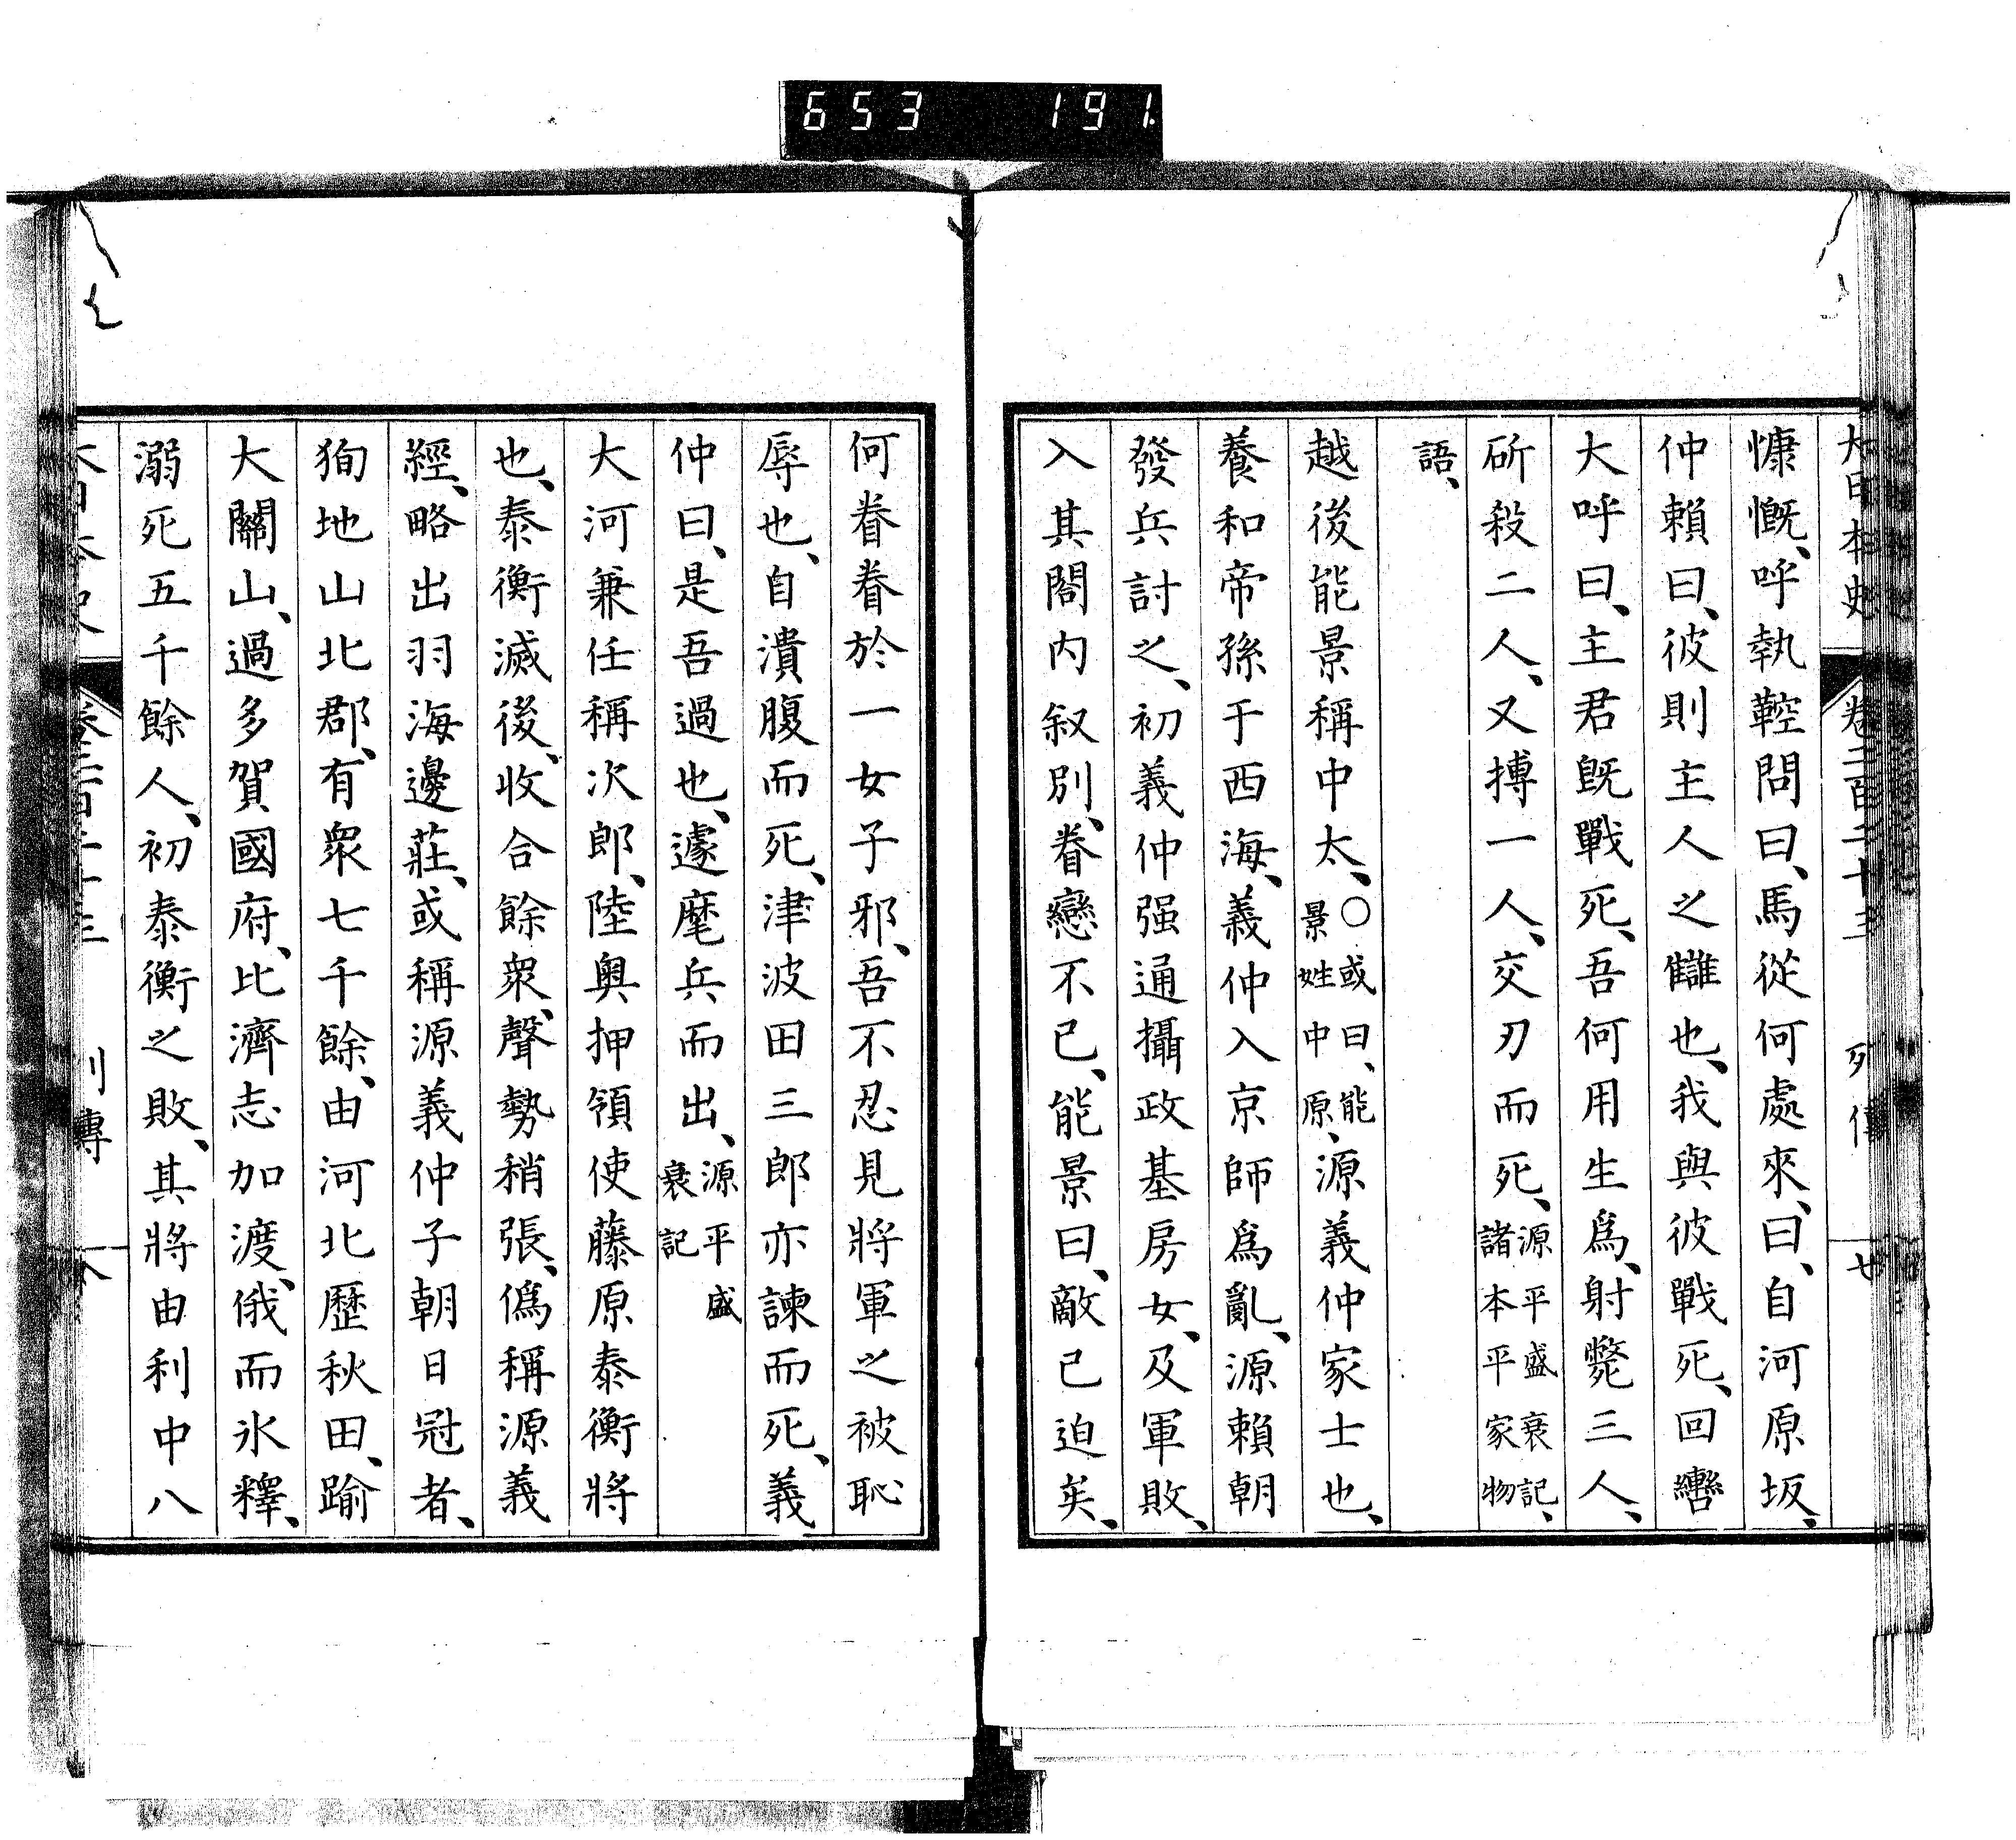 653 191.
大日本史 卷二百二十三 列傳 七
慷慨、呼執鞚問曰、馬從何處來、曰、自河原坂、
仲賴曰、彼則主人之讎也、我與彼戰死、回轡
大呼曰、主君既戰死、吾何用生爲、射斃三人、
斫殺二人、又搏一人、交刃而死、源平盛衰記、諸本平家物
語、
越後能景稱中太、○或曰、能景姓中原、源義仲家士也、
養和帝孫于西海、義仲入京師爲亂、源賴朝
發兵討之、初義仲强通攝政基房女、及軍敗、
入其閤內叙別、眷戀不已、能景曰、敵已迫矣、
何眷眷於一女子邪、吾不忍見將軍之被恥
辱也、自潰腹而死、津波田三郎亦諫而死、義
仲曰、是吾過也、遽麾兵而出、源平盛衰記
大河兼任稱次郎、陸奧押領使藤原泰衡將
也、泰衡滅後、收合餘衆、聲勢稍張、僞稱源義
經、略出羽海邊莊、或稱源義仲子朝日冠者、
狥地山北郡、有衆七千餘、由河北歷秋田、踰
大關山、過多賀國府、比濟志加渡、俄而氷釋、
溺死五千餘人、初泰衡之敗、其將由利中八
大日本史 卷二百二十三 列傳 八